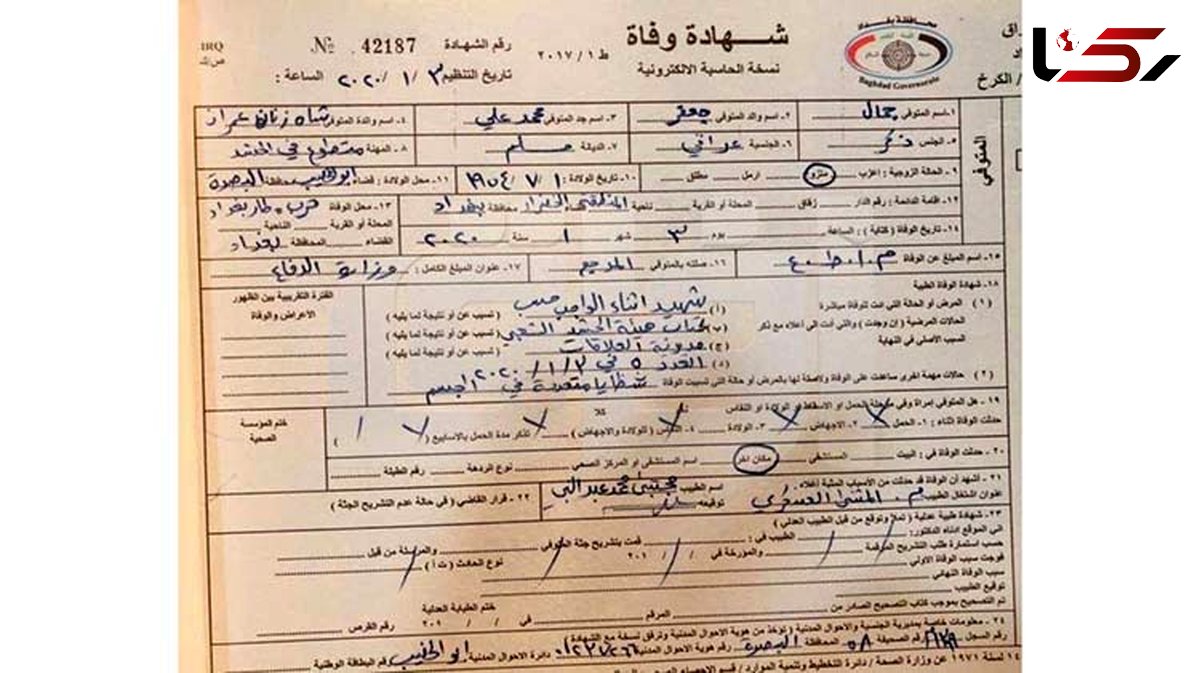 رکنا
شهادة وفاة
نسخة الحاسبة الالكترونية
ط ٢٠١٧/١
محافظة بغداد
Baghdad Governorate
/ الكرخ
رقم الشهادة 42187 №
IRQ
تاريخ التنظيم ٣ / ١ / ٢٠٢٠ الساعة :
المتوفي
١- اسم المتوفي جمال ٢- اسم والد المتوفي جعفر ٣- اسم جد المتوفي محمد علي ٤- اسم والدة المتوفي شاه زنان عمران
٥- الجنس ذكر ٦- الجنسية عراقي ٧- الديانة مسلم ٨- المهنة متطوع في الحشد
٩- الحالة الزوجية : اعزب متزوج ارمل مطلق ١٠- تاريخ الولادة : ١ / ٧ / ١٩٥٤ ١١- محل الولادة : قضاء ابو الخصيب محافظة البصرة
١٢- اقامة الدائمة : رقم الدار زقاق المحلة أو القرية ناحية المنطقة الخضراء محافظة بغداد
١٣- محل الوفاة قرب مطار بغداد
المحلة أو القرية الناحية
القضاء المحافظة بغداد
١٤- تاريخ الوفاة ( كتابة ) : الساعة يوم ٣ شهر ١ سنة ٢٠٢٠
١٥- اسم المبلغ عن الوفاة م.ا.ط.ع ١٦- صلته بالمتوفي ١٧- عنوان المبلغ الكامل : وزارة الدفاع
١٨- شهادة الوفاة الطبية
الفترة التقريبية بين الظهور الاعراض والوفاة
(١) المرض أو الحالة التي ادت للوفاة مباشرة
الحالات المرضية ( إن وجدت ) والتي أدت الى أعلاه مع ذكر
السبب الأصلي في النهاية
(أ) شهيد اثناء الواجب حسب ( تسبب عن أو نتيجة لما يليه )
(ب) كتاب هيئة الحشد الشعبي ( تسبب عن أو نتيجة لما يليه )
(ج) مديرية العلاقات ( تسبب عن أو نتيجة لما يليه )
(د) العدد ٥ في ٣ / ١ / ٢٠٢٠
(٢) حالات مهمة اخرى ساعدت على الوفاة ولاصلة لها بالمرض أو حالة التي تسببت الوفاة شظايا متعددة في الجسم
١٩- هل المتوفي إمرأة وفي مرحلة الحمل او الاسقاط او الولادة او النفاس نعم كلا
حدثت الوفاة اثناء : ١- الحمل ٢- الاجهاض ٣- الولادة ٤- النفاس ( للولادة والاجهاض ) تذكر مدة الحمل بالاسابيع ( )
ختم المؤسسة الصحية
٢٠- حدثت الوفاة في : البيت المستشفى مكان اخر اسم المستشفى او المركز الصحي نوع الردهة رقم الطبلة
٢١- أشهد أن الوفاة قد حدثت من الأسباب المبينة أعلاه
اسم الطبيب مجتبى محمد عبد النبي
عنوان اشتغال الطبيب م. المثنى العسكري توقيعه
٢٢- قرار القاضي ( في حالة عدم التشريح الجثة )
٢٣- شهادة طبية عدلية ( تملأ وتوقع من قبل الطبيب العدلي )
انى الموقع ادناه الدكتور : الطبيب في : قمت بتشريح جثة المتوفي والمرسلة من قبل
حسب استمارة طلب التشريح المرقمة والمؤرخة في / / ٢٠١ نوع الحادث ( ت أ )
فوجدت سبب الوفاة الاولي
سبب الوفاة النهائي
توقيع الطبيب
تم التصحيح بموجب كتاب التصحيح الصادر من المرقم في / / ٢٠١ رقم القرص
ختم الطبابة العدلية
٢٤- معلومات خاصة بمديرية الجنسية والاحوال المدنية ( تؤخذ من هوية الاحوال المدنية وترفق نسخة مع الشهادة )
رقم السجل رقم الصحيفة ٥٨ المحافظة البصرة رقم هوية الاحوال المدنية دائرة الاحوال المدنية ابو الخصيب رقم البطاقة الوطنية
١٤ لسنة ١٩٧١ عن وزارة الصحة / دائرة التخطيط وتنمية الموارد / قسم الاحصاء